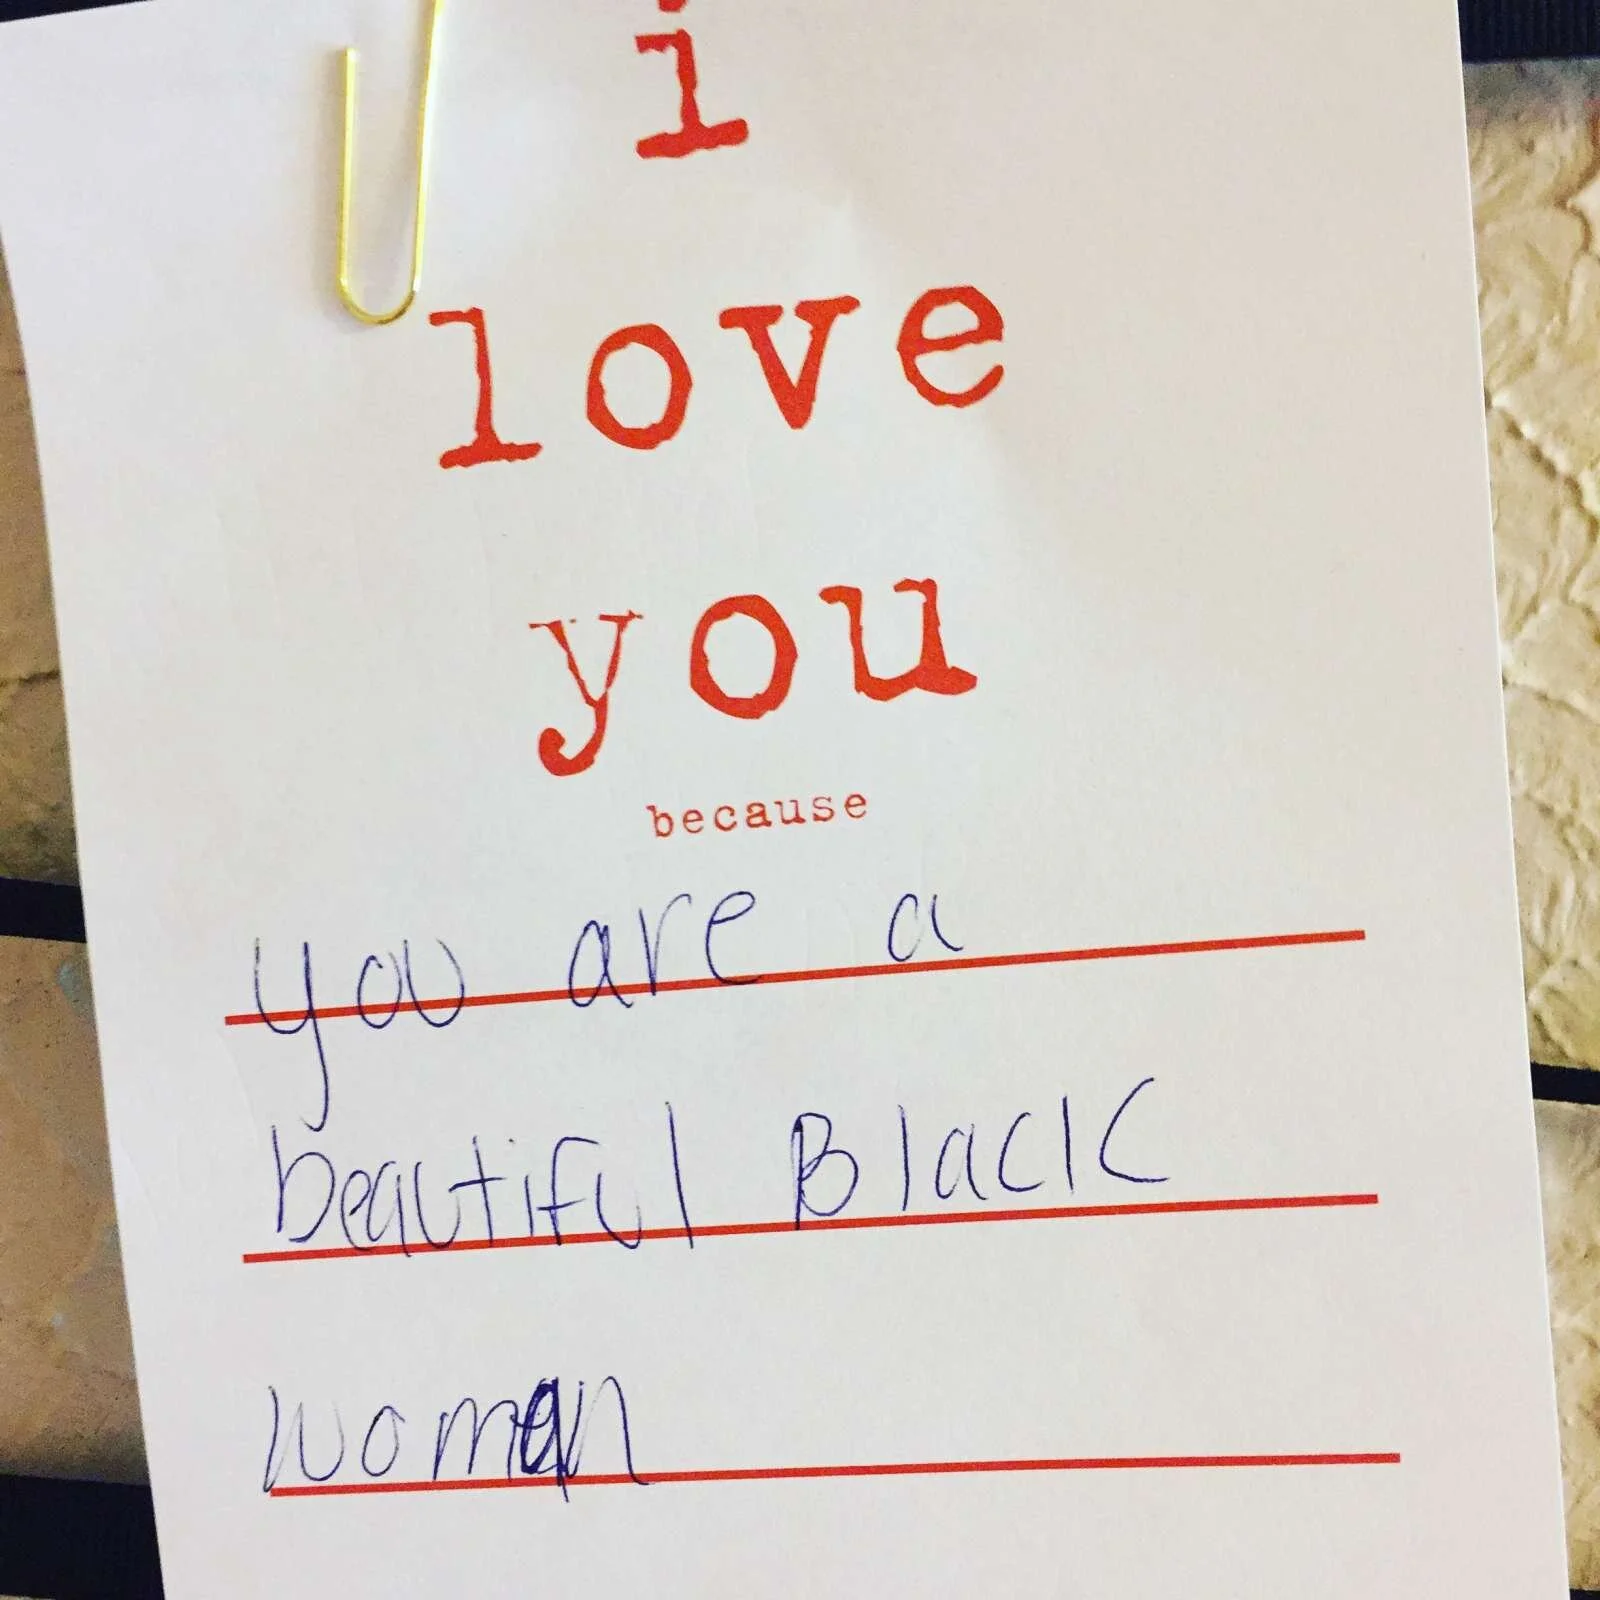 i
love
you
because
you are a
beautiful Black
woman